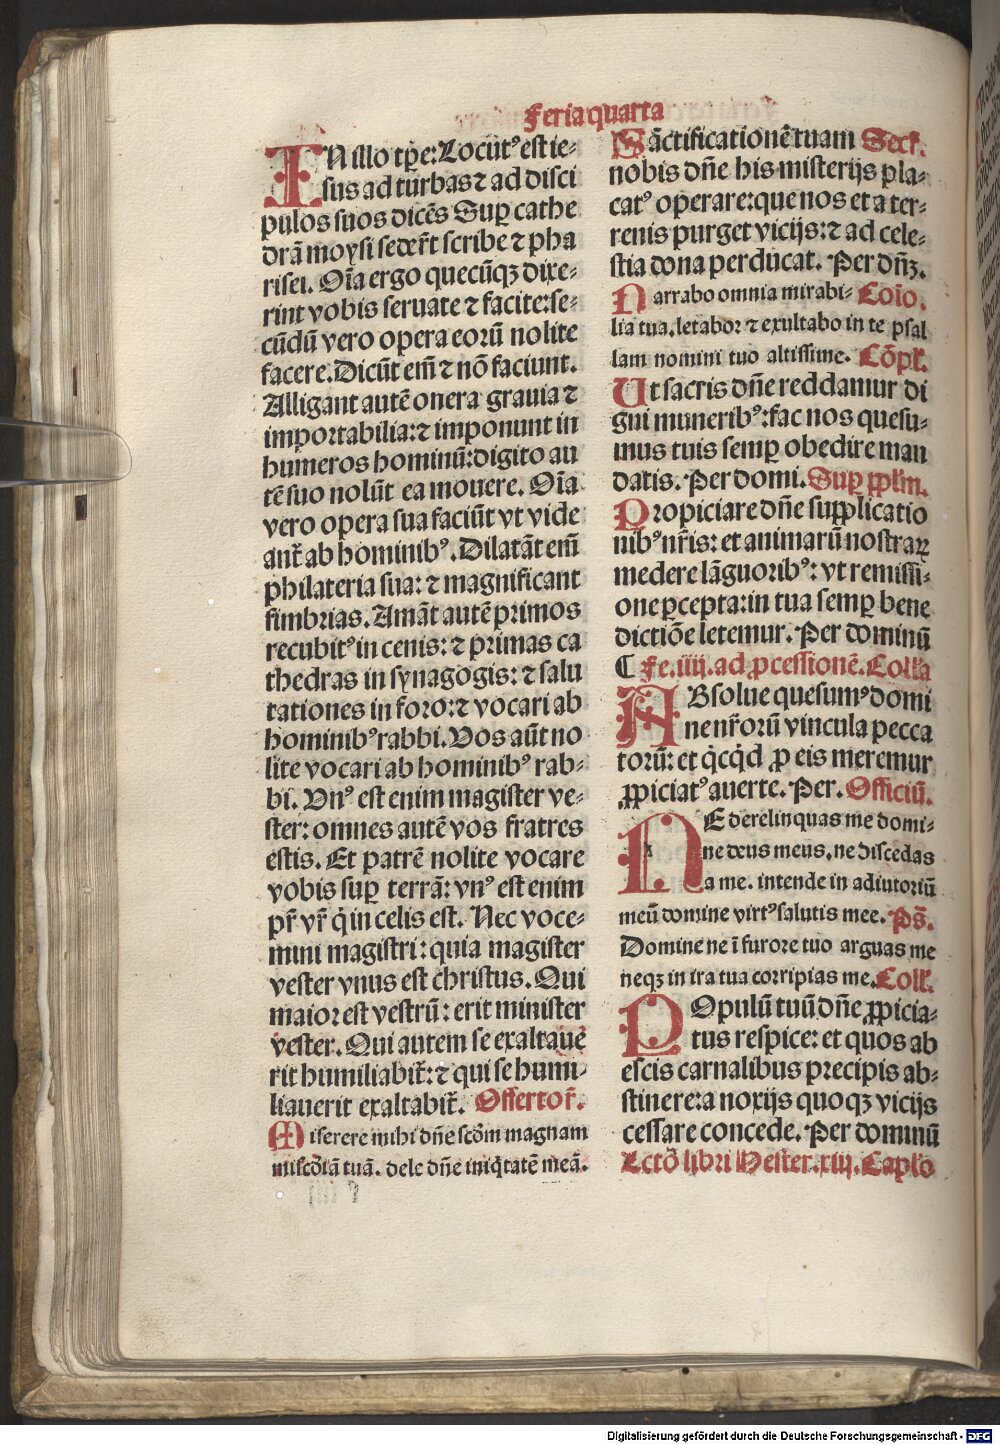 Feria quarta
IN illo tp̄e: Locutꝰ est ie-
sus ad turbas ⁊ ad disci
pulos suos dicēs Suꝑ cathe
drā moysi sederūt scribe ⁊ pha
risei. Oīa ergo quecūqꝫ dixe-
rint vobis seruate ⁊ facite: se-
cūdū vero opera eorū nolite
facere. Dicūt em̄ ⁊ nō faciunt.
Alligant autē onera grauia ⁊
importabilia: ⁊ imponunt in
humeros hominū: digito au
tē suo nolūt ea mouere. Oīa
vero opera sua faciūt vt vide
ant̄ ab hominibꝰ. Dilatāt em̄
philateria sua: ⁊ magnificant
fimbrias. Amāt autē primos
recubitꝰ in cenis: ⁊ primas ca
thedras in synagogis: ⁊ salu
tationes in foro: ⁊ vocari ab
hominibꝰ rabbi. Vos aūt no
lite vocari ab hominibꝰ rab-
bi. Vnꝰ est enim magister ve-
ster: omnes autē vos fratres
estis. Et patrē nolite vocare
vobis suꝑ terrā: vnꝰ est enim
pr̄ vr̄ q̇ in celis est. Nec voce-
mini magistri: quia magister
vester vnus est christus. Qui
maior est vestrū: erit minister
vester. Qui autem se exaltaue
rit humiliabit̄: ⁊ qui se humi-
liauerit exaltabit̄. Offertor̄.
Miserere mihi dn̄e scd̄m magnam
miscd̄iā tuā. dele dn̄e iniq̇tatē meā.
Sāctificationē tuam Secr̄.
nobis dn̄e his misterijs pla-
catꝰ operare: que nos et a ter-
renis purget vicijs: ⁊ ad cele-
stia dona perducat. Per dn̄ꝫ.
Narrabo omnia mirabi- Coīo.
lia tua. letabor ⁊ exultabo in te psal
lam nomini tuo altissime. Cōpl̄.
Ut sacris dn̄e reddamur di
gni muneribꝰ: fac nos quesu-
mus tuis semꝑ obedire man
datis. Per domi. Suꝑ ppl̄m.
Propiciare dn̄e supplicatio
nibꝰ nr̄is: et animarū nostraꝝ
medere lāguoribꝰ: vt remissi-
one ꝑcepta: in tua semꝑ bene
dictiōe letemur. Per dominū
¶ Fe. iiij. ad ꝓcessionē. Colla
ABsolue quesumꝰ domi
ne nr̄orū vincula pecca
torū: et q̇cq̇d ꝓ eis meremur
ꝓpiciatꝰ auerte. Per. Officiū.
NE derelinquas me domi-
ne deus meus. ne discedas
a me. intende in adiutoriū
meū domine virtꝰ salutis mee. Ps̄.
Domine ne ī furore tuo arguas me
neqꝫ in ira tua corripias me. Coll̄.
POpulū tuū dn̄e ꝓpicia-
tus respice: et quos ab
escis carnalibus precipis ab-
stinere: a noxijs quoqꝫ vicijs
cessare concede. Per dominū
Lctō libri Hester. xiij. Capl̄o
Digitalisierung gefördert durch die Deutsche Forschungsgemeinschaft - DFG